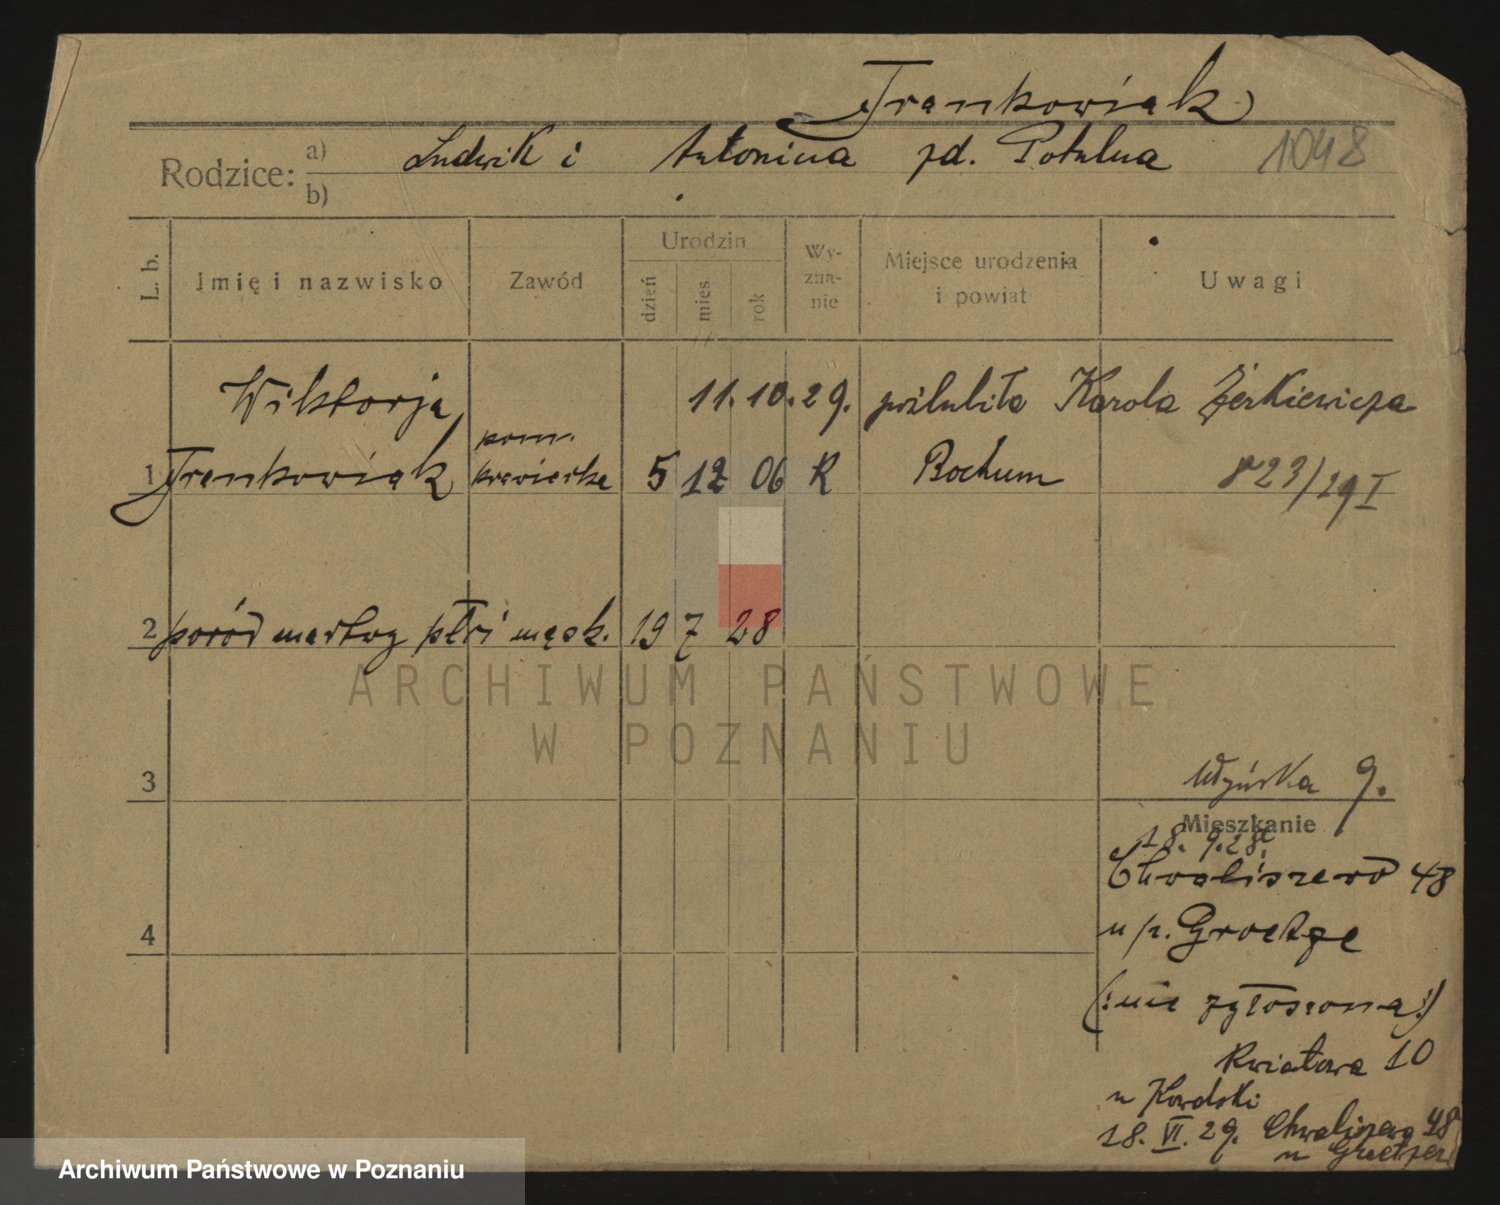 Frankowiak
Rodzice: a) Ludwik i Antonina zd. Potulna 1048
b)
L. b. Imię i nazwisko Zawód Urodzin dzień mies rok Wy-zna-nie Miejsce urodzenia i powiat Uwagi
Wiktorja 11. 10. 29. poślubiła Karola Żerkiewicza
pom.
1 Frankowiak krawiecka 5 12 06 R Bochum 823/29 I
2 poród martwy płci męsk. 19 7 28
ARCHIWUM PAŃSTWOWE
W POZNANIU
3
9.
Mieszkanie
18. 9. 28.
Chwaliszewo 48
4
u p. Groetze
(: nie zgłoszona :)
Kwiatowa 10
u Kowalski
18. VI. 29. Chwaliszewo 48
u
Archiwum Państwowe w Poznaniu